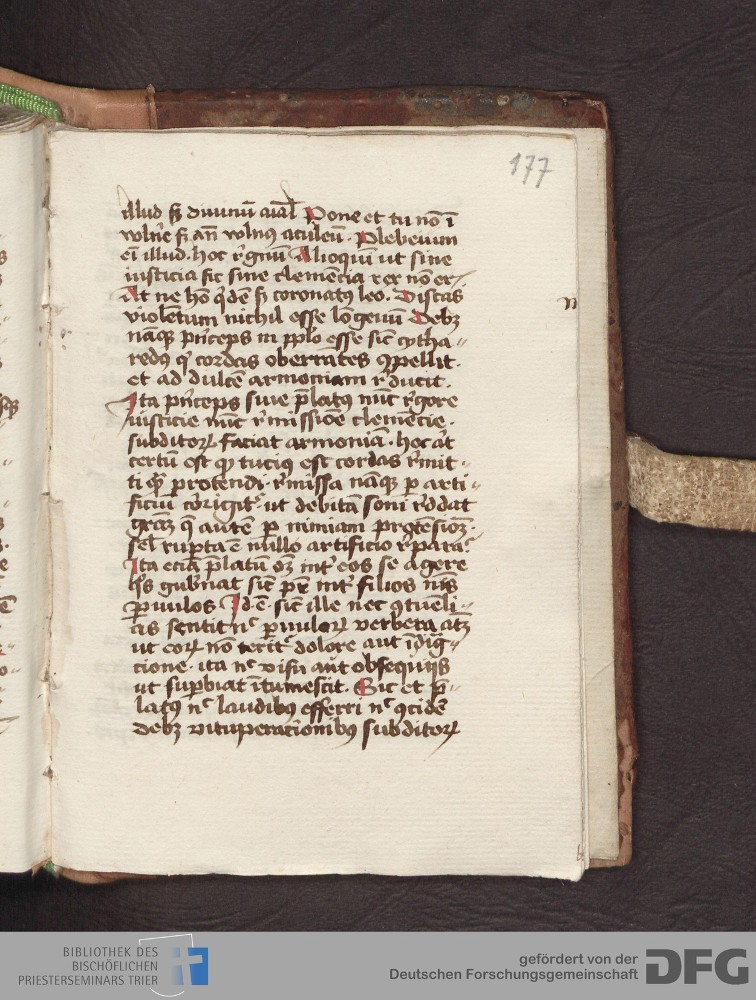 177
illud sꝫ diuinū aıāl Pone et tu nō ī
vuln̄e sꝫ añ vuln9 aculeū. Plebeium
eı̄ illud. hoc r̄gnū Alioquı̄ ut sine
iusticia sic sine clemēcia rex nō er
At ne hō q̇dē sꝫ coronat9 leo. Discas
violētum nichil esse lōgeuū Debꝫ
nāqꝫ pn̄ceps in pplo esse sic̄ cytha
red9 q̇ cordas oberrātes ꝯpellit.
et ad dulcē armoniam r̄ducit.
Ita pn̄ceps siue p̄lat9 nūc rigore
iusticie nūc r̄missiōe clemēcie.
subditoꝝ faciat armoniā. hoc aūt
certū est qꝫ tuci9 est cordas r̄mit
ti qꝫ̄ protendi. r̄missa nāqꝫ ꝑ arti
ficiū corrigitˀ ut debitā soni r̄ddat
grāꝫ q̄ autē ꝑ nimiam protēsiōꝫ.
sel̄ rupta ē nullo artificio r̄paratˀ
Ita eciā p̄latū oꝫ int̄ eos se agere
q̇s gub̄nat sic̄ pr̄ int̄ filios n̄is
ꝑuulos Id ē sic̄ ille nec ꝯtuēli
is sentit nc̄ ꝑuuloꝝ verbera atꝫ
ut eoꝝ nō teritˀ dolore aut īdig
cione. ita nc̄ visu aut obsequijs
ut sup̄biat ītumescit. Sic et p̄
lat9 nc̄ laudib9 efferri nc̄ ꝯcidē
debꝫ vituperaciōnib9 subditoꝝ
BIBLIOTHEK DES
BISCHÖFLICHEN
PRIESTERSEMINARS TRIER
gefördert von der
Deutschen Forschungsgemeinschaft
DFG